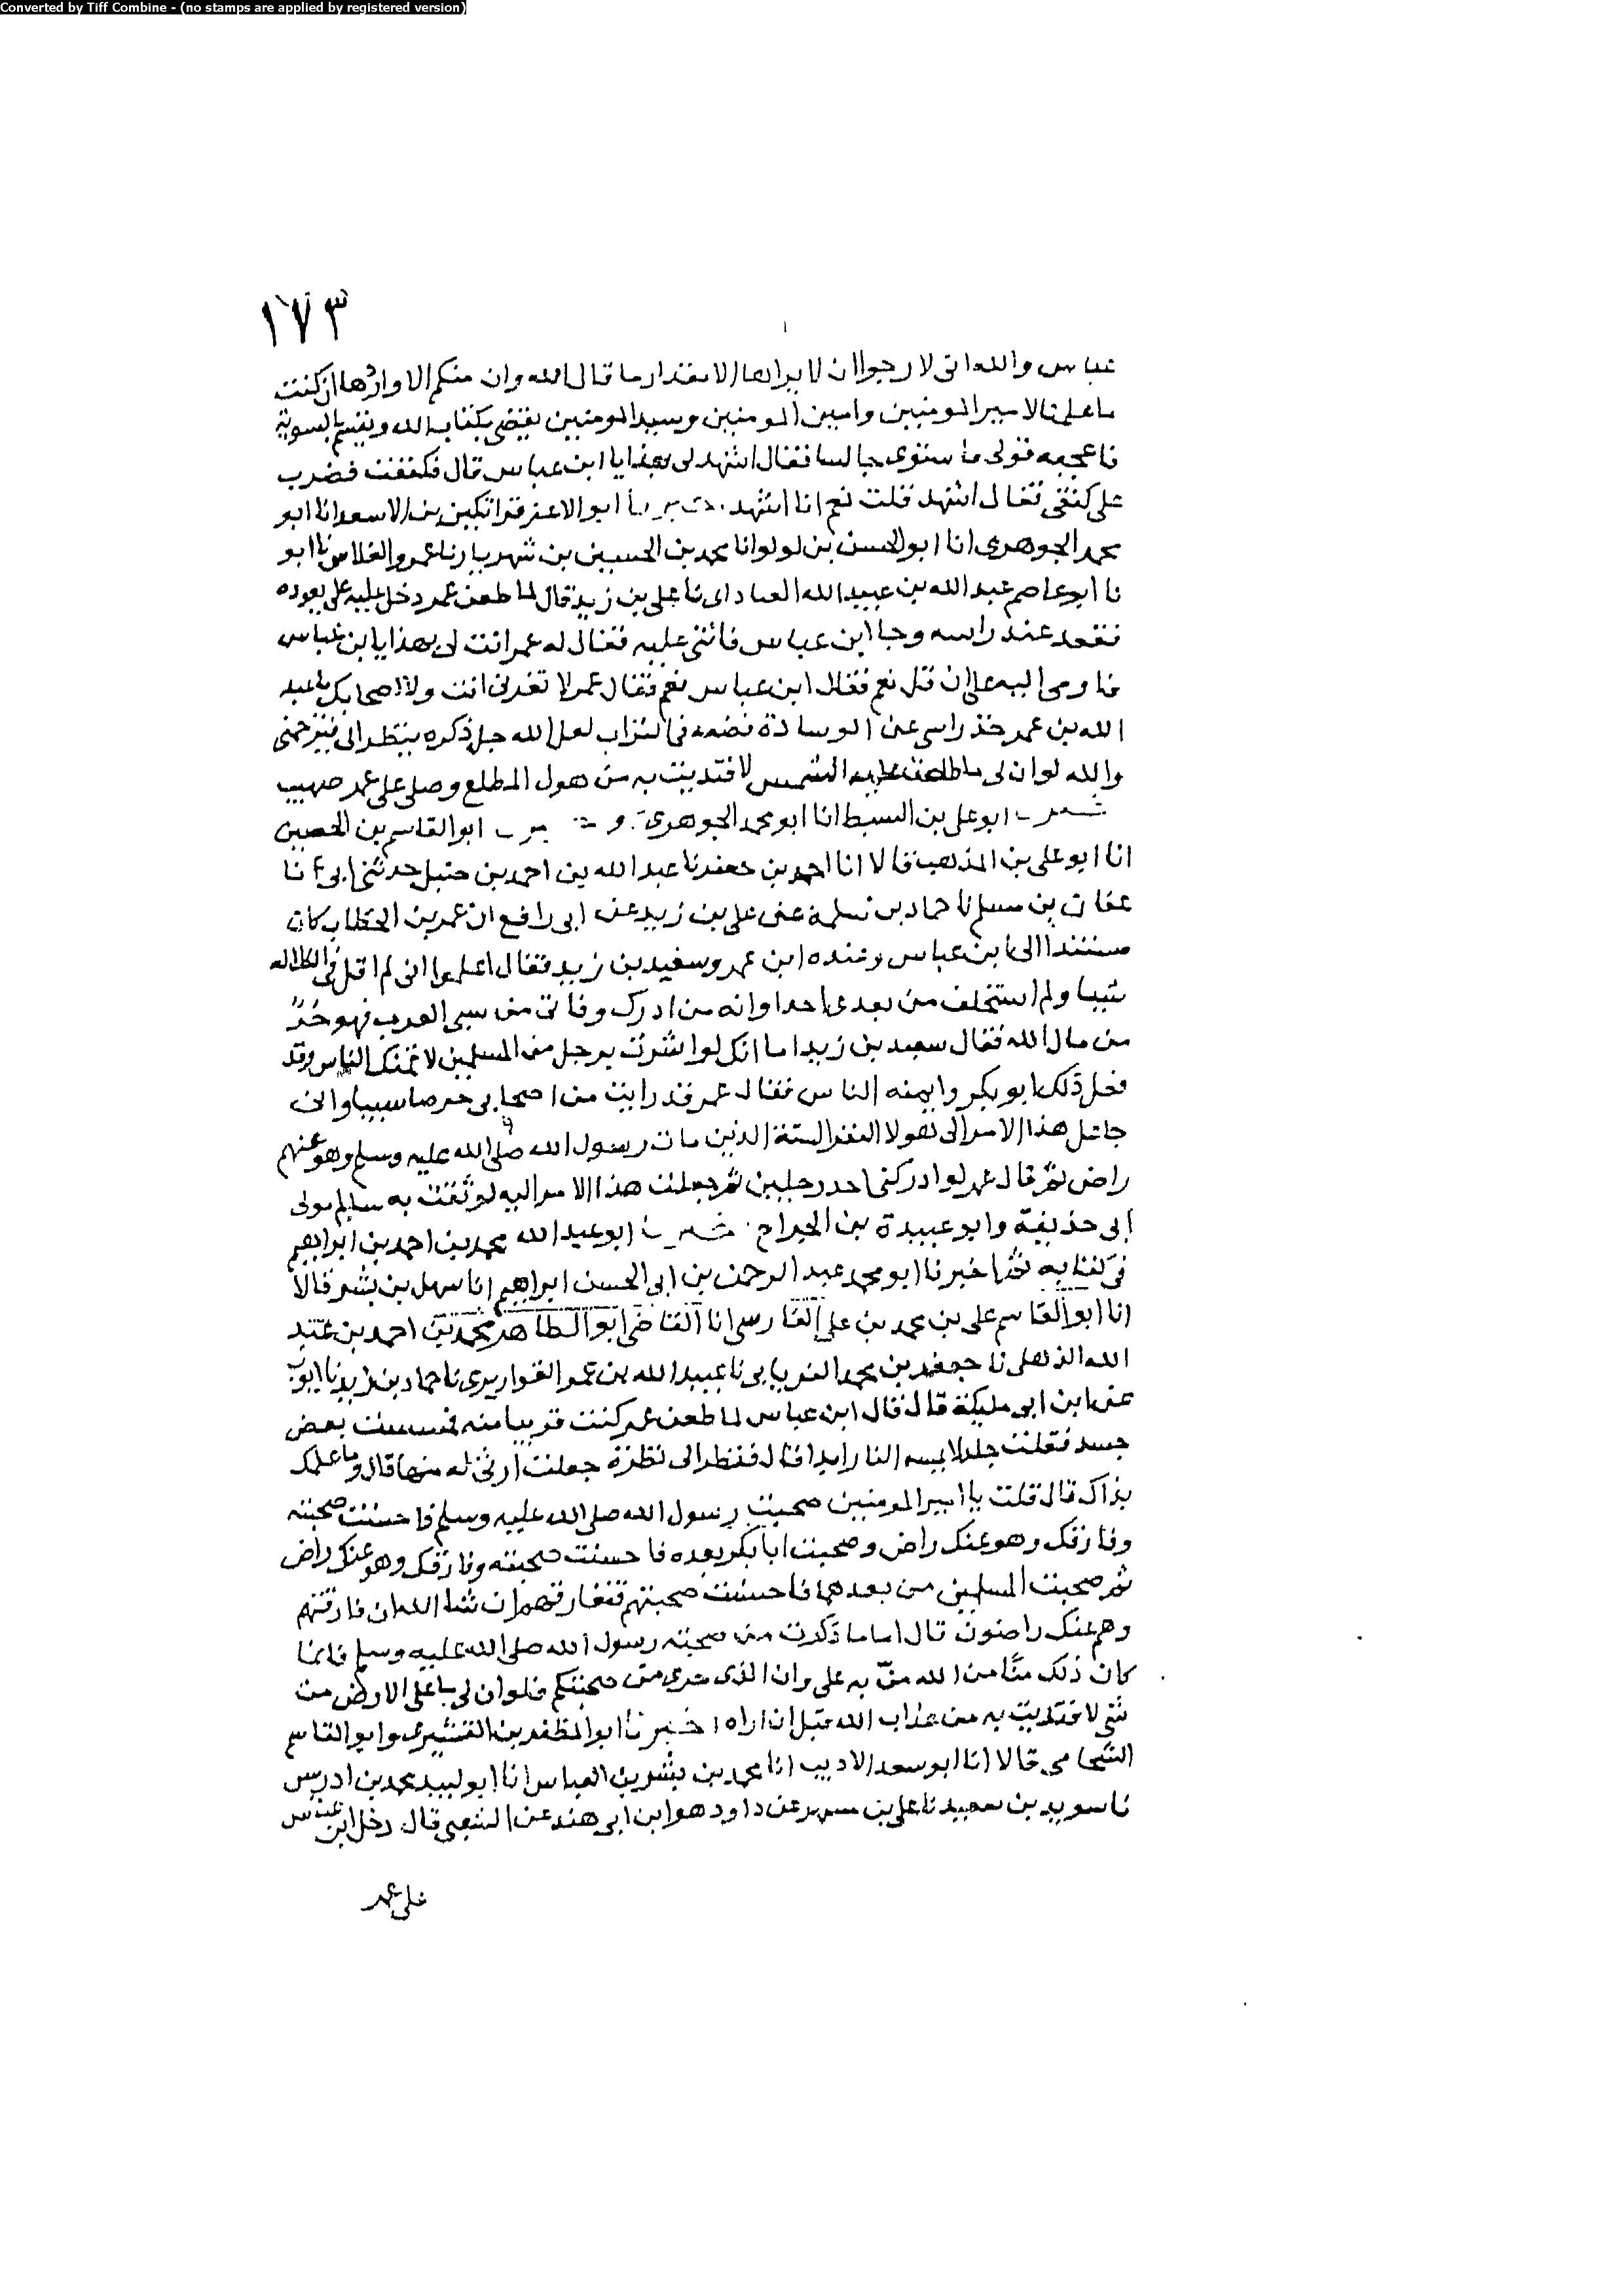 Converted by Tiff Combine - (no stamps are applied by registered version)
١٧٣
عباس والله انى لارجوا ان لا يراها الا مقدار ما قال الله وان منكم الا واردها ان كنت
ما علمنا لامير المومنين وامين المومنين وسيد المومنين يقضى بكتاب الله ويقسم بالسوية
فاعجبه قولى فاستوى جالسا فقال اشهد لى بهذا يا ابن عباس قال فكففت فضرب
على كتفى فقال اشهد قلت نعم انا اشهد ابو الاعز قراتكين بن الاسعد انا ابو
محمد الجوهرى انا ابو الحسن بن لولو انا محمد بن الحسين بن شهريار نا عمرو الفلاس نا ابو
نا ابو عاصم عبد الله بن عبيد الله العباداى نا على بن زيد قال لما طعن عمر دخل عليه على يعوده
فقعد عند راسه وجا ابن عباس فاثنى عليه فقال له عمر انت لى بهذا يا بن عباس
فاومى اليه على ان قل نعم فقال ابن عباس نعم فقال عمر لا تغرنى انت ولا اصحابك يا عبد
الله بن عمر خذ راسى عن الوسادة فضعه فى التراب لعل الله جل ذكره ينظر الى فيرحمنى
والله لو ان لى ما طلعت عليه الشمس لافتديت به من هول المطلع وصلى على عمر صهيب
ابو على بن السبط انا ابو محمد الجوهرى ابو القاسم بن الحصين
انا ابو على بن المذهب قالا انا احمد بن جعفر نا عبد الله بن احمد بن حنبل حدثنى ابى نا
عفان بن مسلم نا حماد بن سلمة عن على بن زيد عن ابى رافع ان عمر بن الخطاب كان
مستندا الى ابن عباس وعنده ابن عمر وسعيد بن زيد فقال اعلموا انى لم اقل فى الكلاله
شييا ولم استخلف من بعدى احدا وانه من ادرك وفاتى من سبى العرب فهو حُرّ
من مال الله فقال سعيد بن زيد اما انك لو اشرت برجل من المسلمين لاتمنك الناس وقد
فعل ذلك ابو بكر وايمنه الناس فقال عمر قد رايت من اصحابى حرصا سييا وانى
جاعل هذا الامر الى هولا النفر الستة الذين مات رسول الله صلى الله عليه وسلم وهو عنهم
راض ثم قال عمر لو ادركنى احد رجلين ثم جعلت هذا الامر اليه لوثقت به سالم مولى
ابى حذيفة وابو عبيدة بن الجراح ابو عبد الله محمد بن احمد بن ابراهيم
فى كتابه اخبرنا ابو محمد عبد الرحمن بن ابى الحسن ابراهيم انا سهل بن بشر قالا
انا ابو القاسم على بن محمد بن على الفارسى انا القاضى ابو الطاهر محمد بن احمد بن عبد
الله الذهلى نا جعفر بن محمد الفريابى نا عبيد الله بن عمر القواريرى نا حماد بن زيد نا ايوب
عن ابن ابى مليكة قال قال ابن عباس لما طعن عمر كنت قريبا منه فمسست بعض
جسد فقلت جلد لا يمسه النار ابدا قال فنظر الى نظرة جعلت ارثى له منها قال وما علمك
بذاك قال قلت يا امير المومنين صحبت رسول الله صلى الله عليه وسلم فاحسنت صحبته
وفارقك وهو عنك راض وصحبت ابا بكر بعده فاحسنت صحبته وفارقك وهو عنك راض
ثم صحبت المسلمين من بعدهما فاحسنت صحبتهم فتفارقهم ان شا الله ان فارقتهم
وهم عنك راضون قال اما ما ذكرت من صحبته رسول الله صلى الله عليه وسلم فانما
كان ذلك منًّا من الله منّ به على وان الذى ترى من صحبتكم فلو ان لى ما على الارض من
شى لافتديت به من عذاب الله قبل ان اراه اخبرنا ابو المظفر بن القشيرى وابو القاسم
الشحامى قالا انا ابو سعد الاديب انا محمد بن بشر بن العباس انا ابو لبيد محمد بن ادريس
نا سويد بن سعيد نا على بن مسهر عن داود هو ابن ابى هند عن الشعبى قال دخل ابن عباس
على عمر